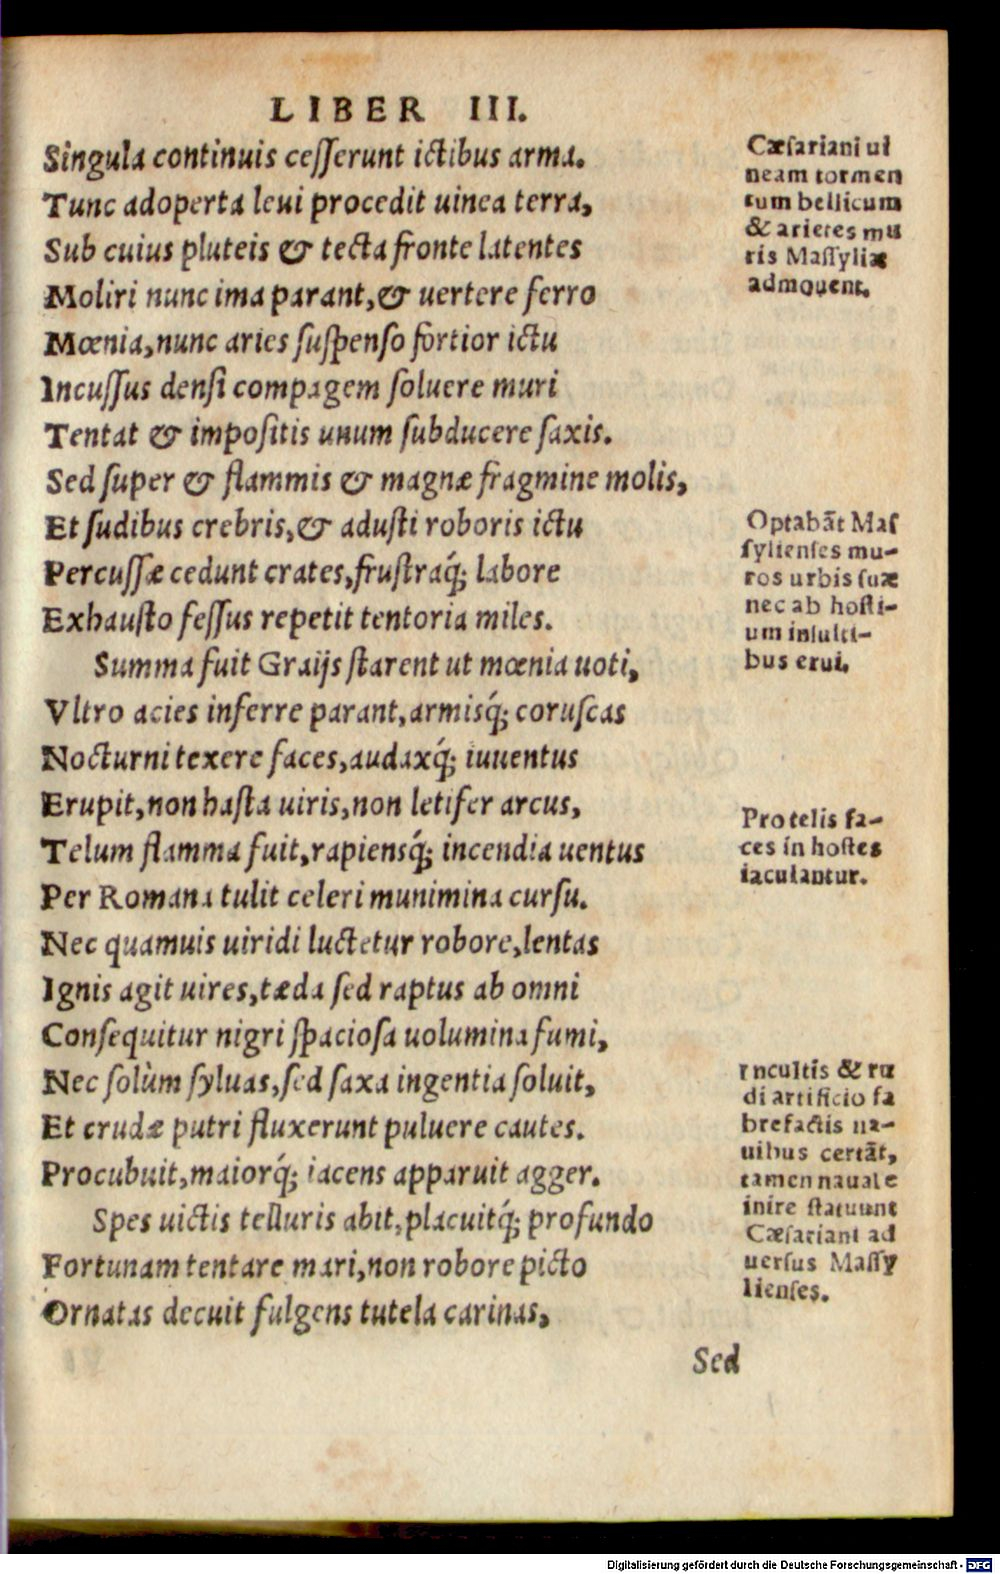 LIBER III.
Singula continuis cesserunt ictibus arma.
Tunc adoperta leui procedit uinea terra,
Sub cuius pluteis & tecta fronte latentes
Moliri nunc ima parant, & uertere ferro
Mœnia, nunc aries suspenso fortior ictu
Incussus densi compagem soluere muri
Tentat & impositis unum subducere saxis.
Sed super & flammis & magnæ fragmine molis,
Et sudibus crebris, & adusti roboris ictu
Percussæ cedunt crates, frustraq́; labore
Exhausto fessus repetit tentoria miles.
Summa fuit Graijs starent ut mœnia uoti,
Vltro acies inferre parant, armisq́; coruscas
Nocturni texere faces, audaxq́; iuuentus
Erupit, non hasta uiris, non letifer arcus,
Telum flamma fuit, rapiensq́; incendia uentus
Per Romana tulit celeri munimina cursu.
Nec quamuis uiridi luctetur robore, lentas
Ignis agit uires, tæda sed raptus ab omni
Consequitur nigri spaciosa uolumina fumi,
Nec solùm syluas, sed saxa ingentia soluit,
Et crudæ putri fluxerunt puluere cautes.
Procubuit, maiorq́; iacens apparuit agger.
Spes uictis telluris abit, placuitq́; profundo
Fortunam tentare mari, non robore picto
Ornatas decuit fulgens tutela carinas,
Sed
Cæsariani ui
neam tormen
tum bellicum
& arietes mu
ris Massyliæ
admouent.
Optabãt Mas
sylienses mu-
ros urbis suæ
nec ab hosti-
um insulti-
bus erui.
Pro telis fa-
ces in hostes
iaculantur.
Incultis & ru
di artificio fa
brefactis na-
uibus certãt,
tamen nauale
inire statuunt
Cæsariani ad
uersus Massy
lienses.
Digitalisierung gefördert durch die Deutsche Forschungsgemeinschaft - DFG